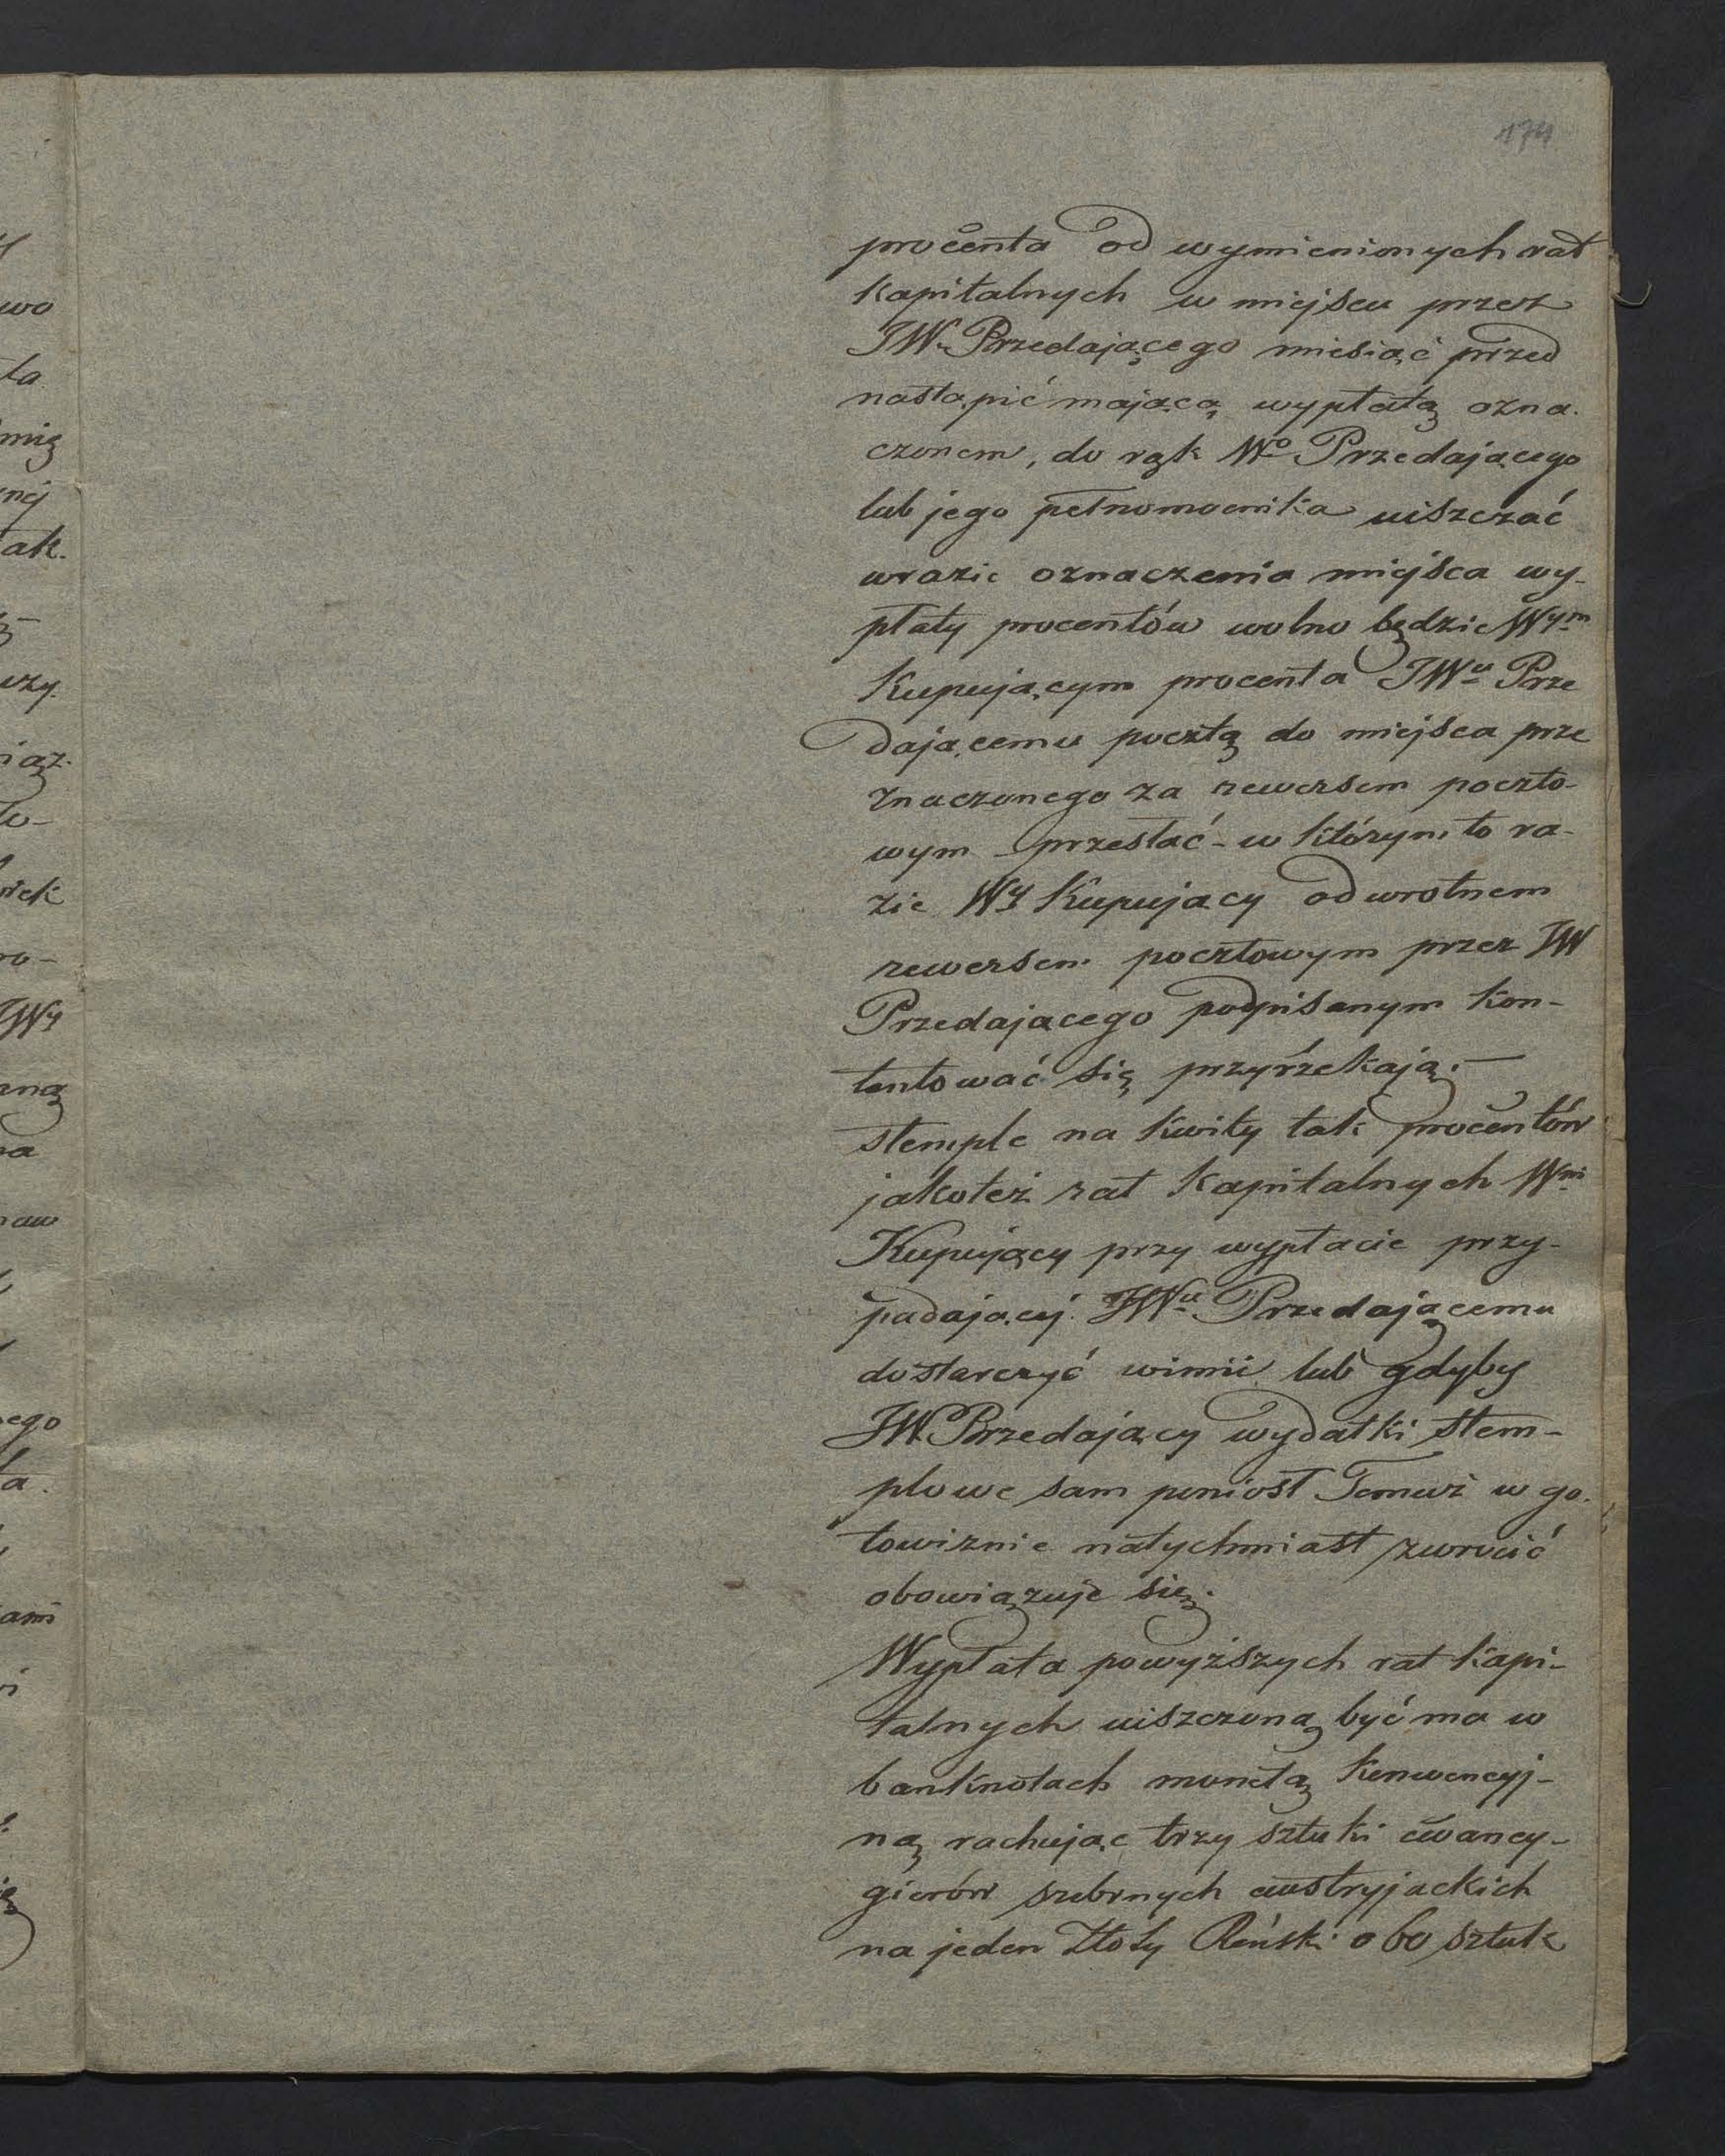 174
procenta od wymienionych rat
kapitalnych w miejscu przez
JW. Przedającego miesiąc przed
nastąpić mającą wypłatą ozna-
czonem, do rąk Wo Przedającego
lub jego pełnomocnika uiszczać
wrazie oznaczenia miejsca wy-
płaty procentów wolno będzie Wym
Kupującym procenta JWu Prze
dającemu pocztą do miejsca prze
znaczonego za rewersem poczto-
wym przesłać - w którym to ra-
zie Wy Kupujący odwrotnem
rewersem pocztowym przez JW
Przedajacego podpisanym kon-
tentować się przyrzekają. —
stemple na kwity tak procentów
jakoteż rat kapitalnych Wni
Kupujący przy wypłacie przy-
padającej JWu Przedającemu
dostarczyć winni lub gdyby
JW. Przedający wydatki stem-
plowe sam poniosł Temuż w go-
towiznie natychmiast zwrócić
obowiązuje się.
Wypłata powyższych rat kapi-
talnych uiszczoną być ma w
banknotach monetą konwencyj-
ną rachując trzy sztuki cwancy-
gierów srebrnych austryjackich
na jeden Złoty Reński o 60 sztuk